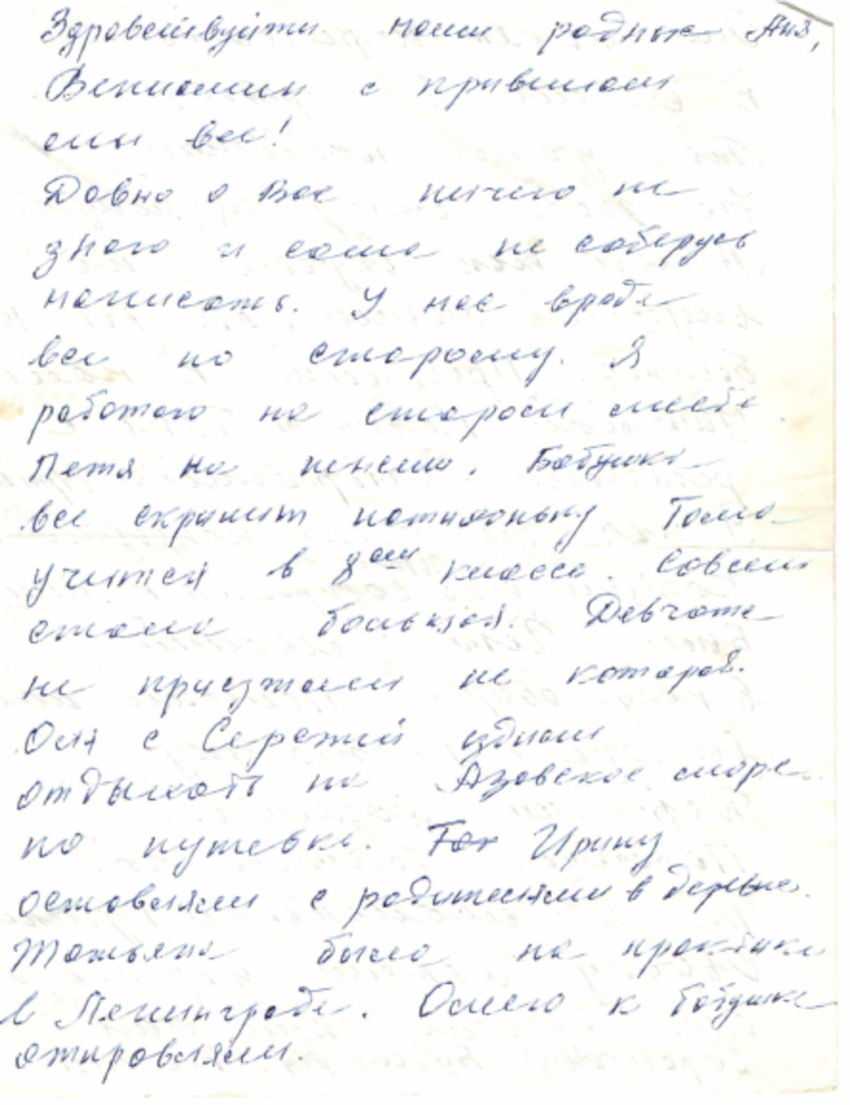 Здравствуйти наши родные Аня,
Вениамин с приветом
мы все!
Давно о Вас ничего не
знаю и сама не соберусь
написать. У нас вроде
все по старому. Я
работаю на старом месте
Петя на пенсии. Бабушка
все скрипит потихоньку Тома
учится в 8ом классе. Совсем
стала большая. Девчата
не приезжали не которая.
Оля с Сережей ездили
отдыхать на Азовское море
по путевке. Ирину
оставляли с родителями в деревне.
Татьяна была на практике
в Ленинграде. Олею к бабушке
отправляли.